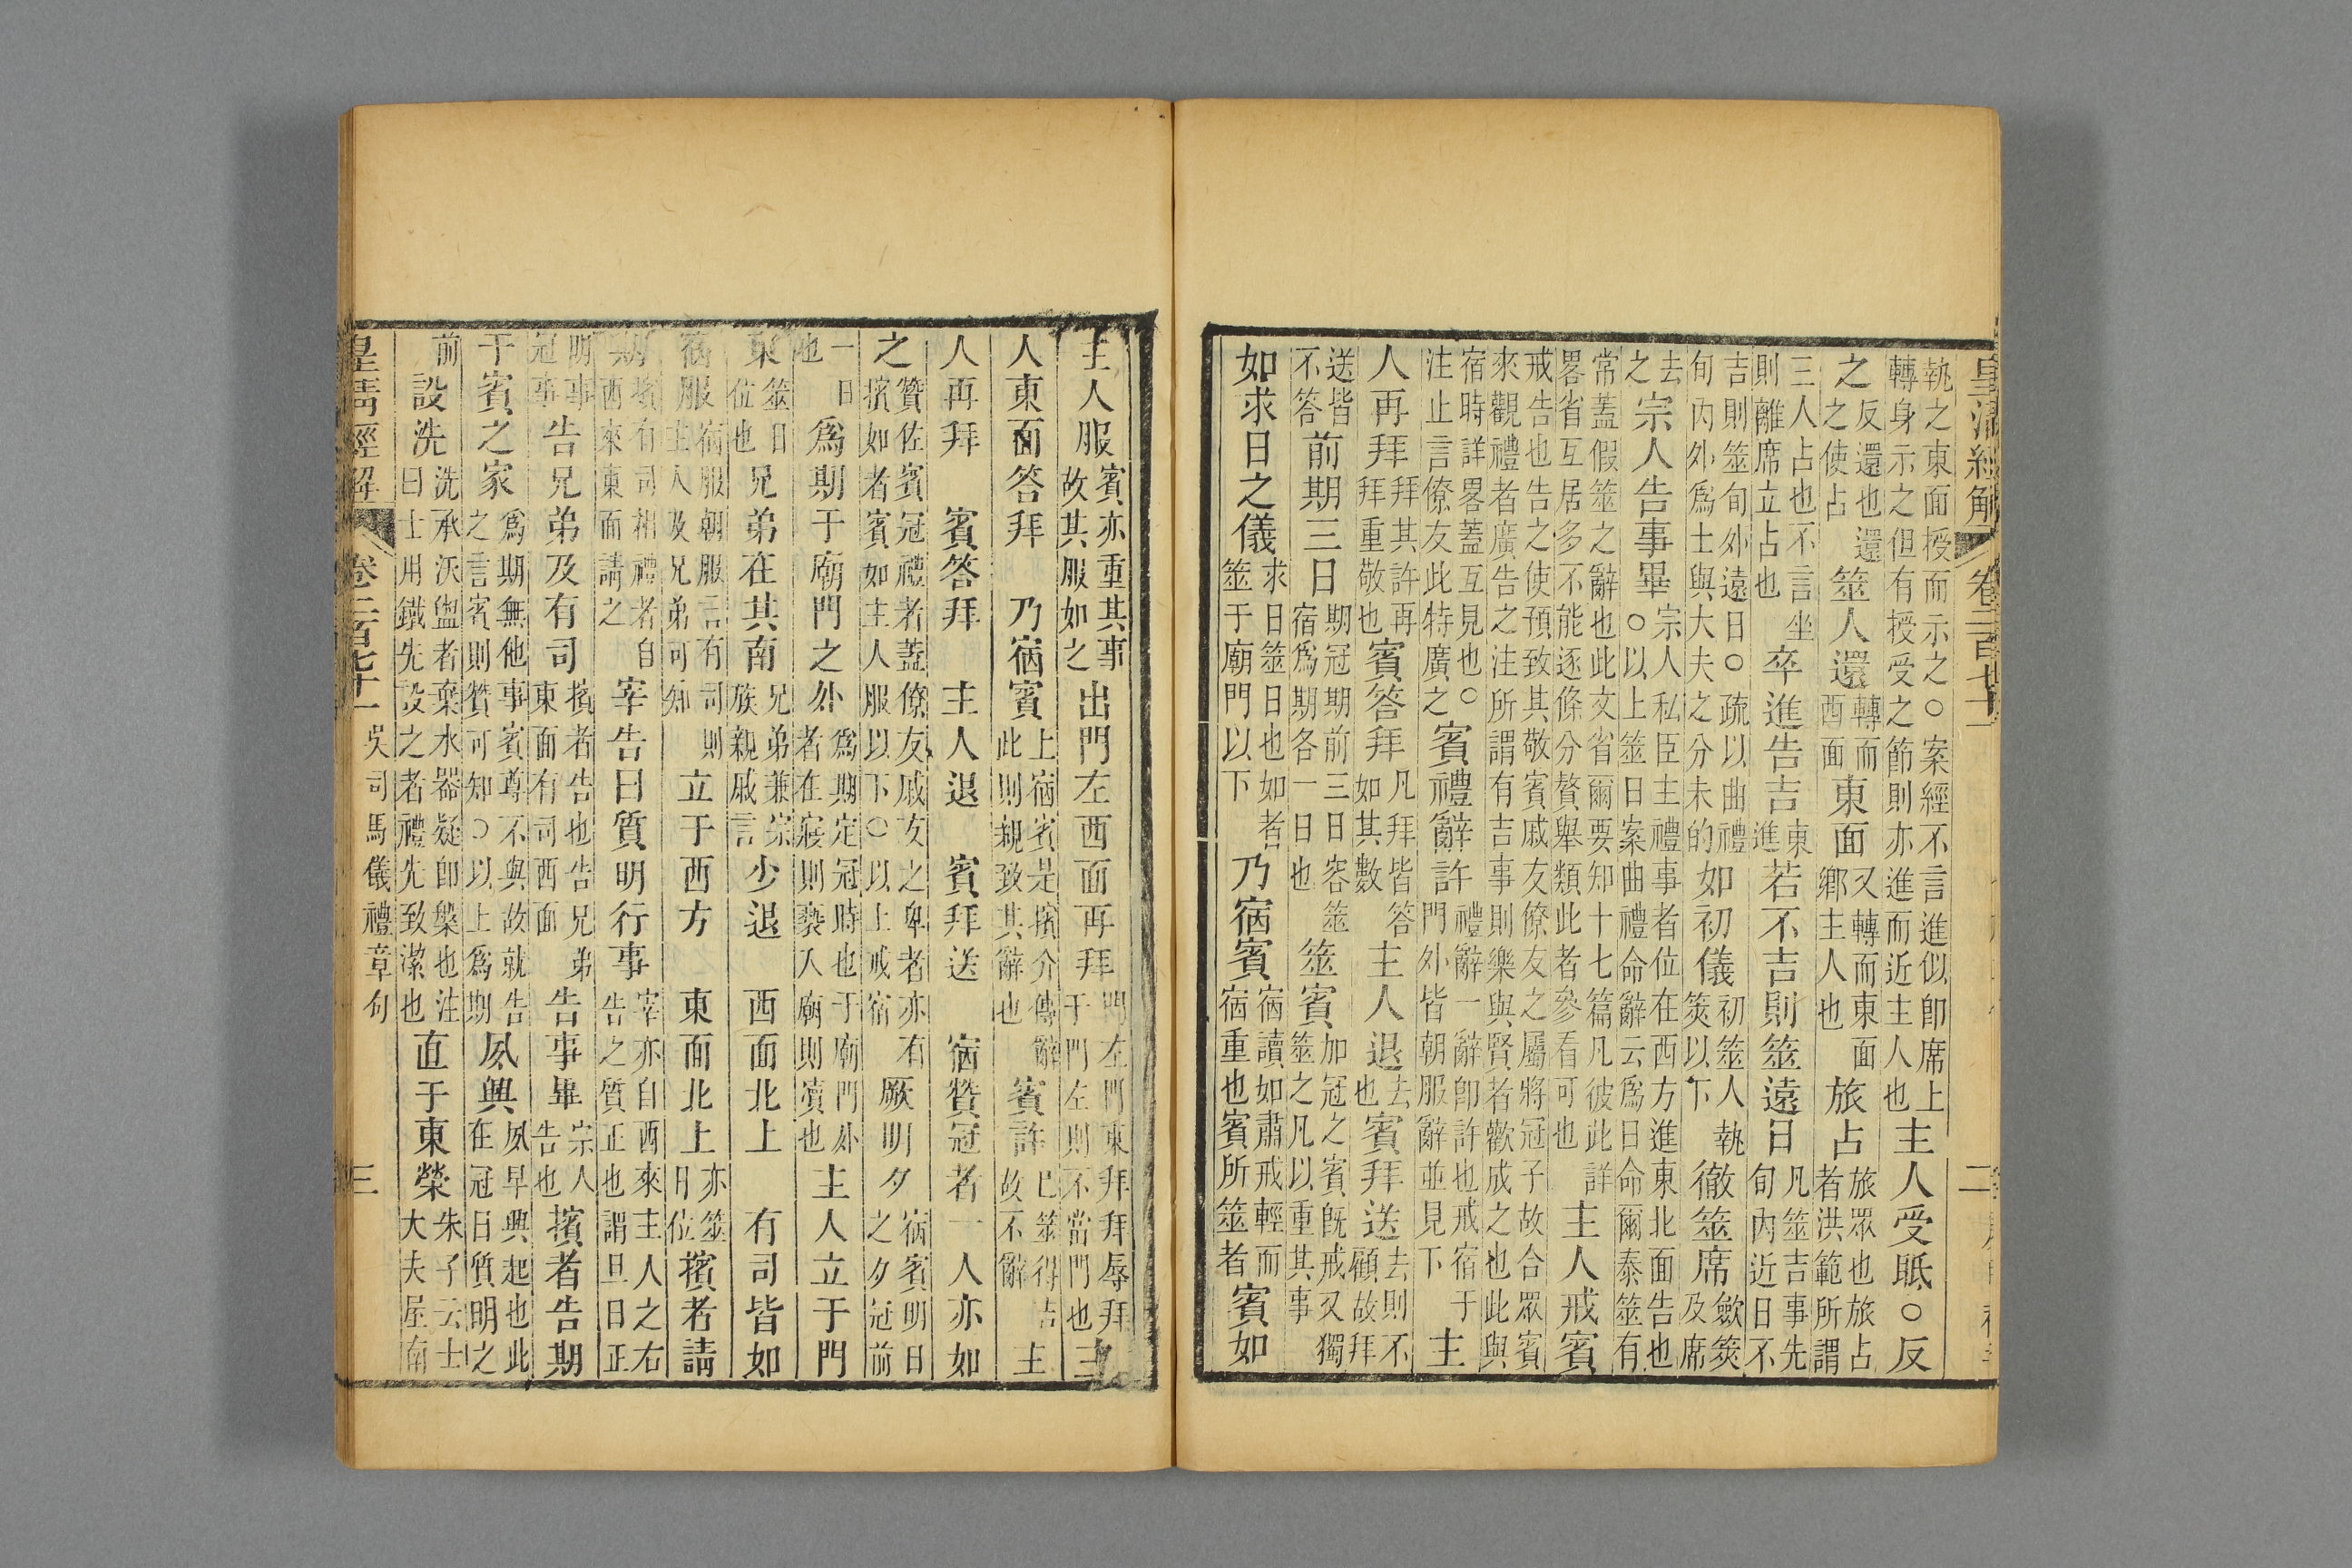 皇清經解 卷二百七十一 二
執之東面授而示之○案經不言進似卽席上轉身示之但有授受之節則亦進而近主人也主人受眡○反
之反還也還之使占筮人還轉而西面東面又轉而東面鄉主人也旅占旅眾也旅占者洪範所謂
三人占也不言坐則離席立占也卒進告吉東進若不吉則筮遠日凡筮吉事先旬內近日不
吉則筮旬外遠日○疏以曲禮旬內外爲士與大夫之分未的如初儀初筮人執筴以下徹筮席歛筴及席
去之宗人告事畢宗人私臣主禮事者位在西方進東北面告也○以上筮日案曲禮命辭云爲日命爾泰筮有
常蓋假筮之辭也此文省爾要知十七篇凡彼此詳畧省互居多不能逐條分贅舉類此者參看可也主人戒賓
戒告也告之使預致其敬賓戚友僚友之屬將冠子故合眾賓來觀禮者廣告之注所謂有吉事則樂與賢者歡成之也此與
宿時詳畧蓋互見也○注止言僚友此特廣之賓禮辭許禮辭一辭卽許也戒宿于門外皆朝服辭並見下主
人再拜拜其許再拜重敬也賓答拜凡拜皆答如其數主人退去也賓拜送去則不顧故拜
送皆不答前期三日期冠期前三日容筮宿爲期各一日也筮賓加冠之賓旣戒又獨筮之凡以重其事
如求日之儀求日筮日也如者筮于廟門以下乃宿賓宿讀如肅戒輕而宿重也賓所筮者賓如
主人服賓亦重其事故其服如之出門左西面再拜門左門東拜拜辱拜于門左則不當門也主
人東面答拜 乃宿賓上宿賓是擯介傳辭此則親致其辭也賓許已筮得吉故不辭主
人再拜 賓答拜 主人退 賓拜送 宿贊冠者一人亦如
之贊佐賓冠禮者蓋僚友戚友之卑者亦有擯如者賓如主人服以下○以上戒宿厥明夕宿賓明日之夕冠前
一日也爲期于廟門之外爲期定冠時也于廟門外者在寢則褻入廟則瀆也主人立于門
東筮日位也兄弟在其南兄弟兼宗族親戚言少退 西面北上 有司皆如
宿服宿服朝服言有司則主人及兄弟可知立于西方 東面北上亦筮日位擯者請
期擯有司相禮者自西來東面請之宰告曰質明行事宰亦自西來主人之右告之質正也謂旦日正
明事冠事告兄弟及有司擯者告也告兄弟東面有司西面告事畢宗人告也擯者告期
于賓之家爲期無他事賓尊不與故就告之言賓則贊可知○以上爲期夙興夙早興起也此在冠日質明之
前設洗洗承沃盥者棄水器疑卽槃也注曰士用鐵先設之者禮先致潔也直于東榮朱子云士大夫屋南
皇清經解 卷二百七十一 吳司馬儀禮章句 三